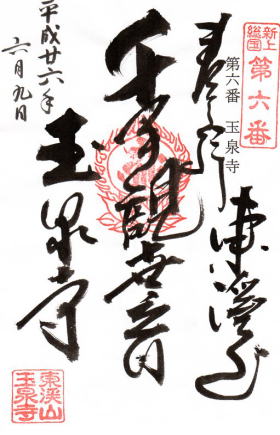 新上総国
第六番
奉拝
東溪山
第六番 玉泉寺
千手觀世音
玉泉寺
平成廿六年
六月九日
東溪山
玉泉寺